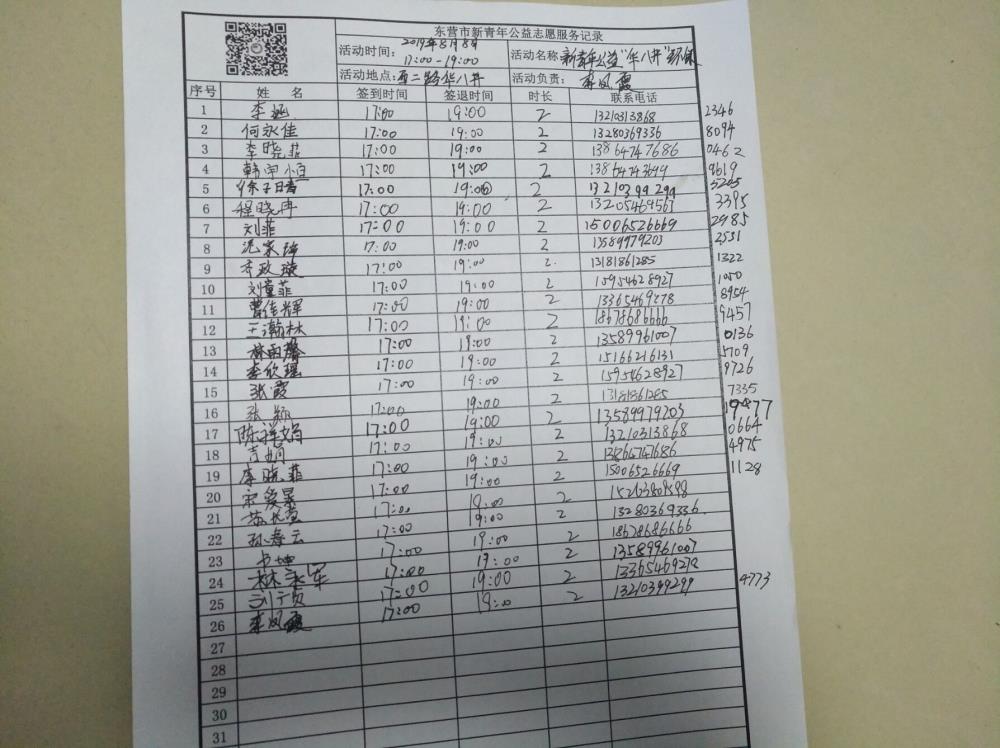 东营市新青年公益志愿服务记录
活动时间： 2019年8月8日 17:00-19:00 活动名称 新青年公益"华八井"环保
活动地点：西二路华八井 活动负责：李凤霞
序号 姓 名 签到时间 签退时间 时长 联系电话
1 李涵 17:00 19:00 2 13210313868 2346
2 何永佳 17:00 19:00 2 13280369336 8094
3 李晓菲 17:00 19:00 2 13864747686 0462
4 韩甲恒 17:00 19:00 2 9619
5 徐子晴 17:00 19:00 2 13210399299 5205
6 程晓冉 17:00 19:00 2 13205469567 3395
7 刘菲 17:00 19:00 2 15006526669 2985
8 17:00 19:00 2 13589979203 2531
9 17:00 19:00 2. 13181861285 1322
10 刘童菲 17:00 19:00 2 15954628927 1050
11 曹佳辉 17:00 19:00 2 13365469278 8954
12 王瀚林 17:00 19:00 2 18678686666 9457
13 林雨馨 17:00 19:00 2 13589961007 0136
14 李欣瑶 17:00 19:00 2 15166216131 5709
15 张霞 17:00 19:00 2 15954628927 9726
16 张颖 17:00 19:00 2 13181861285 7335
17 陈祥娟 17:00 19:00 2 13589979203 19477
18 17:00 19:00 2 13210313868 0664
19 李晓菲 17:00 19:00 2 13864747686 4975
20 宋爱景 17:00 19:00 2 15006526669 1128
21 17:00 19:00 2
22 孙寿云 17:00 19:00 2 13280369336
23 17:00 19:00 2 18678686666
24 林永军 17:00 19:00 2 13589961007
25 17:00 19:00 2 13365469278
26 李凤霞 17:00 19:00 2 13210399299 4773
27
28
29
30
31